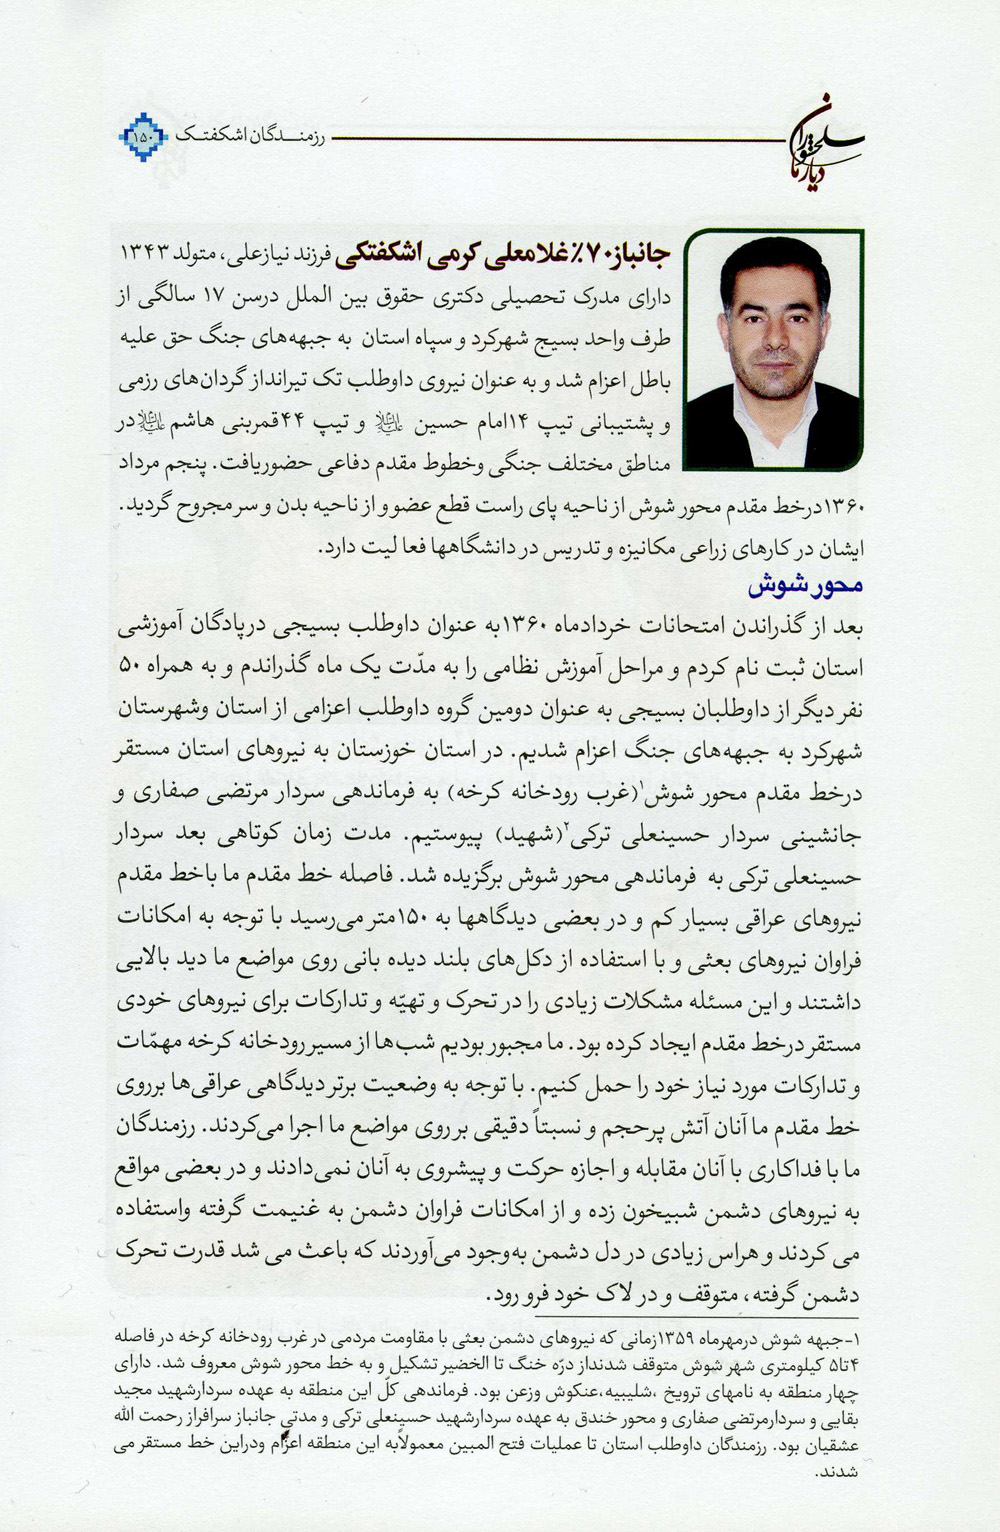 رزمندگان اشکفتک
۱۵۰
جانباز ۷۰٪ غلامعلی کرمی اشکفتکی فرزند نیازعلی، متولد ۱۳۴۳
دارای مدرک تحصیلی دکتری حقوق بین الملل درسن ۱۷ سالگی از
طرف واحد بسیج شهرکرد و سپاه استان به جبهه‌های جنگ حق علیه
باطل اعزام شد و به عنوان نیروی داوطلب تک تیرانداز گردان‌های رزمی
و پشتیبانی تیپ ۱۴امام حسین و تیپ ۴۴قمربنی هاشم در
مناطق مختلف جنگی وخطوط مقدم دفاعی حضوریافت. پنجم مرداد
۱۳۶۰درخط مقدم محور شوش از ناحیه پای راست قطع عضو و از ناحیه بدن و سر مجروح گردید.
ایشان در کارهای زراعی مکانیزه و تدریس در دانشگاهها فعا لیت دارد.
محور شوش
بعد از گذراندن امتحانات خردادماه ۱۳۶۰به عنوان داوطلب بسیجی درپادگان آموزشی
استان ثبت نام کردم و مراحل آموزش نظامی را به مدّت یک ماه گذراندم و به همراه ۵۰
نفر دیگر از داوطلبان بسیجی به عنوان دومین گروه داوطلب اعزامی از استان وشهرستان
شهرکرد به جبهه‌های جنگ اعزام شدیم. در استان خوزستان به نیروهای استان مستقر
درخط مقدم محور شوش۱(غرب رودخانه کرخه) به فرماندهی سردار مرتضی صفاری و
جانشینی سردار حسینعلی ترکی۲(شهید) پیوستیم. مدت زمان کوتاهی بعد سردار
حسینعلی ترکی به فرماندهی محور شوش برگزیده شد. فاصله خط مقدم ما باخط مقدم
نیروهای عراقی بسیار کم و در بعضی دیدگاهها به ۱۵۰متر می‌رسید با توجه به امکانات
فراوان نیروهای بعثی و با استفاده از دکل‌های بلند دیده بانی روی مواضع ما دید بالایی
داشتند و این مسئله مشکلات زیادی را در تحرک و تهیّه و تدارکات برای نیروهای خودی
مستقر درخط مقدم ایجاد کرده بود. ما مجبور بودیم شب‌ها از مسیر رودخانه کرخه مهمّات
و تدارکات مورد نیاز خود را حمل کنیم. با توجه به وضعیت برتر دیدگاهی عراقی‌ها برروی
خط مقدم ما آنان آتش پرحجم و نسبتاً دقیقی بر روی مواضع ما اجرا می‌کردند. رزمندگان
ما با فداکاری با آنان مقابله و اجازه حرکت و پیشروی به آنان نمی‌دادند و در بعضی مواقع
به نیروهای دشمن شبیخون زده و از امکانات فراوان دشمن به غنیمت گرفته واستفاده
می کردند و هراس زیادی در دل دشمن به‌وجود می‌آوردند که باعث می شد قدرت تحرک
دشمن گرفته، متوقف و در لاک خود فرو رود.
۱-جبهه شوش درمهرماه ۱۳۵۹زمانی که نیروهای دشمن بعثی با مقاومت مردمی در غرب رودخانه کرخه در فاصله
۴تا۵ کیلومتری شهر شوش متوقف شدنداز درّه خنگ تا الخضیر تشکیل و به خط محور شوش معروف شد. دارای
چهار منطقه به نامهای ترویخ ،شلیبیه،عنکوش وزعن بود. فرماندهی کلّ این منطقه به عهده سردارشهید مجید
بقایی و سردارمرتضی صفاری و محور خندق به عهده سردارشهید حسینعلی ترکی و مدتی جانباز سرافراز رحمت الله
عشقیان بود. رزمندگان داوطلب استان تا عملیات فتح المبین معمولاًبه این منطقه اعزام ودراین خط مستقر می
شدند.